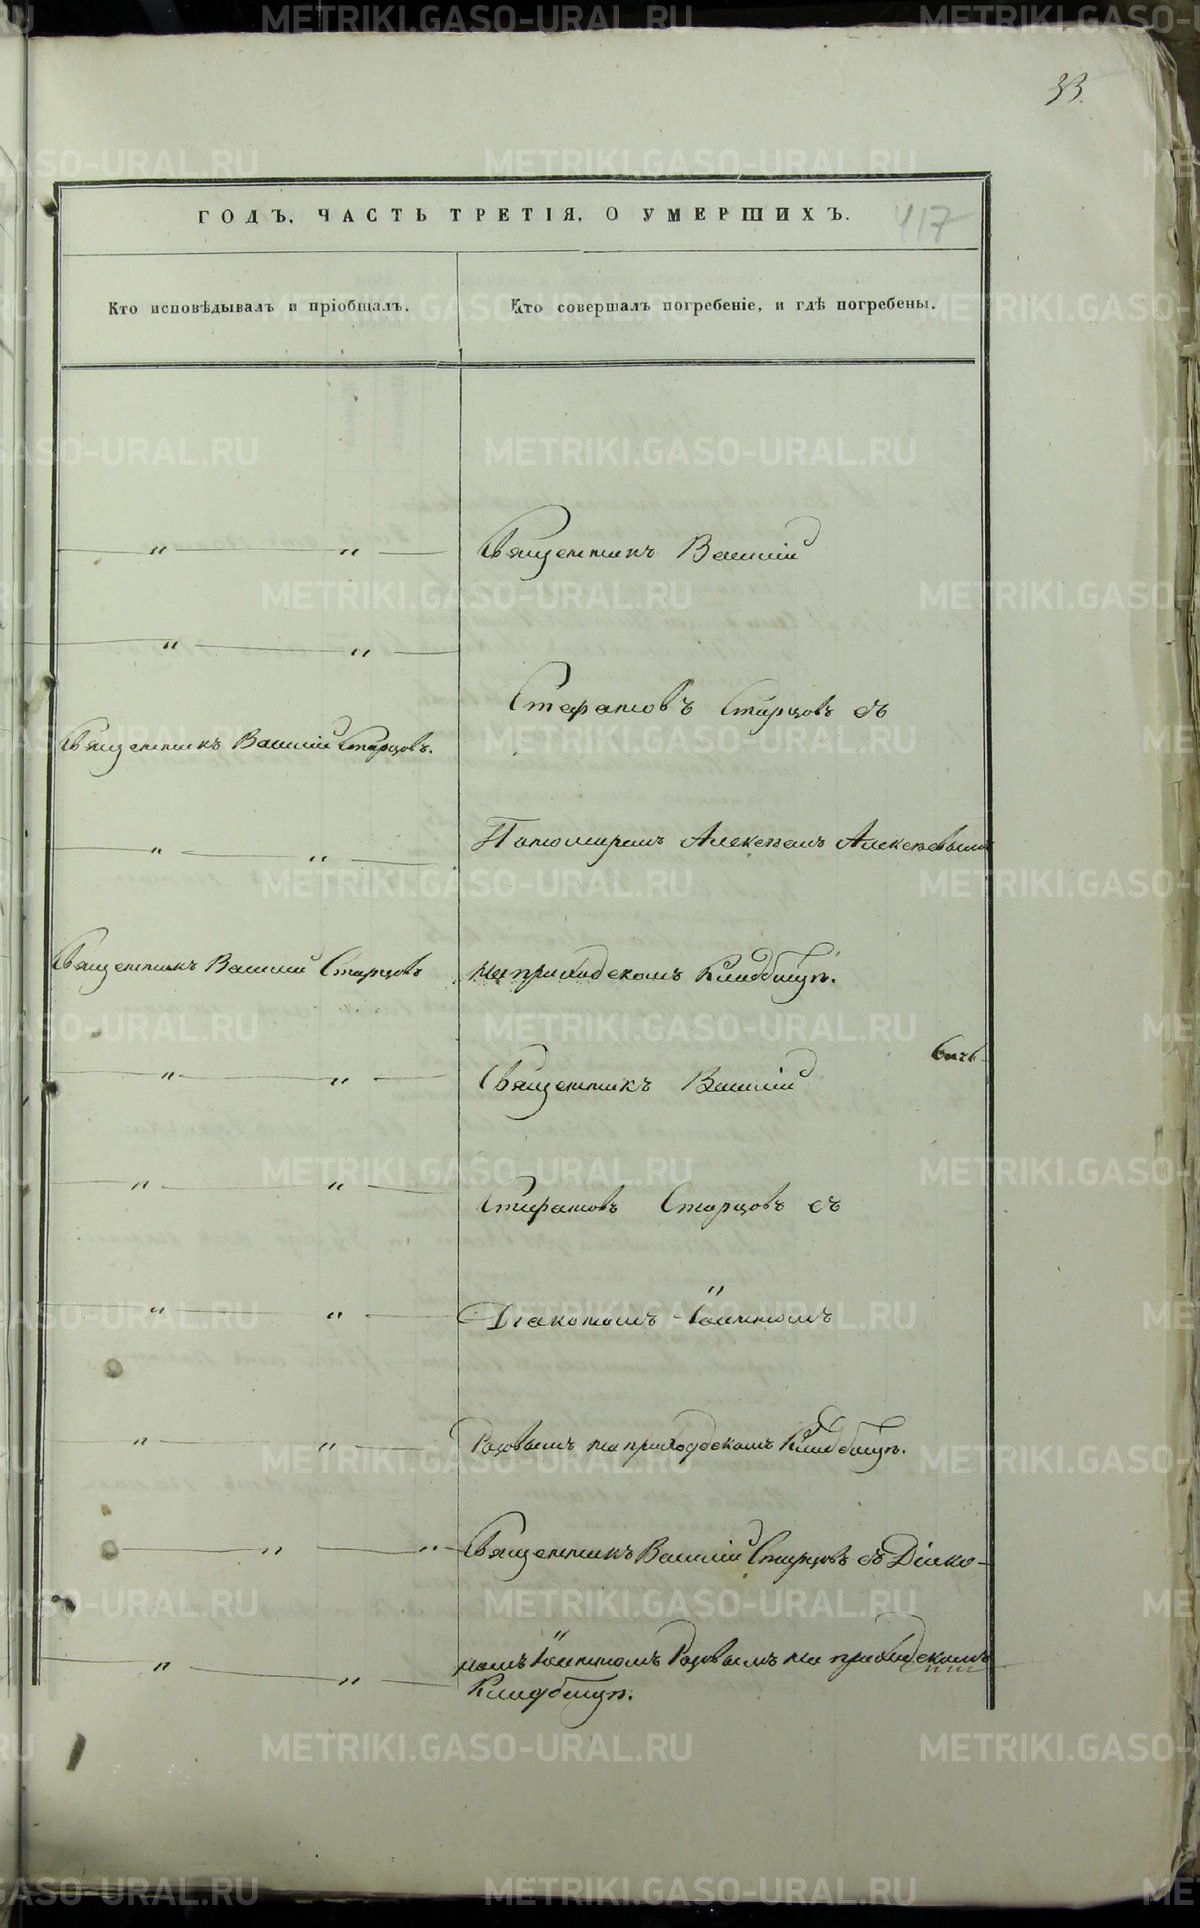 33.
ГОДЪ, ЧАСТЬ ТРЕТІЯ, О УМЕРШИХЪ. 417
Кто исповѣдывалъ и пріобщалъ.
Кто совершалъ погребеніе, и гдѣ погребены.
" "
Священникъ Василій
" "
Стефановъ Старцовъ съ
Священникъ Василій Старцовъ.
" "
Пономаремъ Алексѣемъ Алексѣевымъ
Священникъ Василій Старцовъ
на приходскомъ Кладбищѣ.
" "
Священникъ Василій
" "
Стефановъ Старцовъ съ
" "
Діакономъ Іоанномъ
" "
на приходскомъ Кладбищѣ.
" "
Священникъ Василій Старцовъ съ Діако-
" "
номъ Іоанномъ на приходскомъ
Кладбищѣ.
METRIKI.GASO-URAL.RU